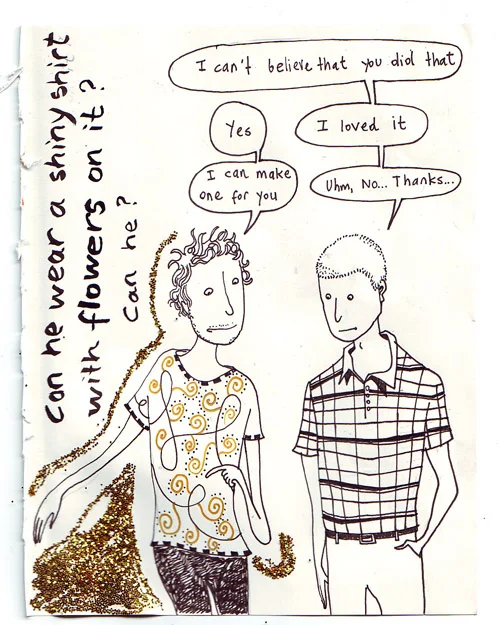 can he wear a shiny shirt
with flowers on it?
can he?
I can't believe that you did that
Yes
I loved it
I can make
one for you
Uhm, No... Thanks...